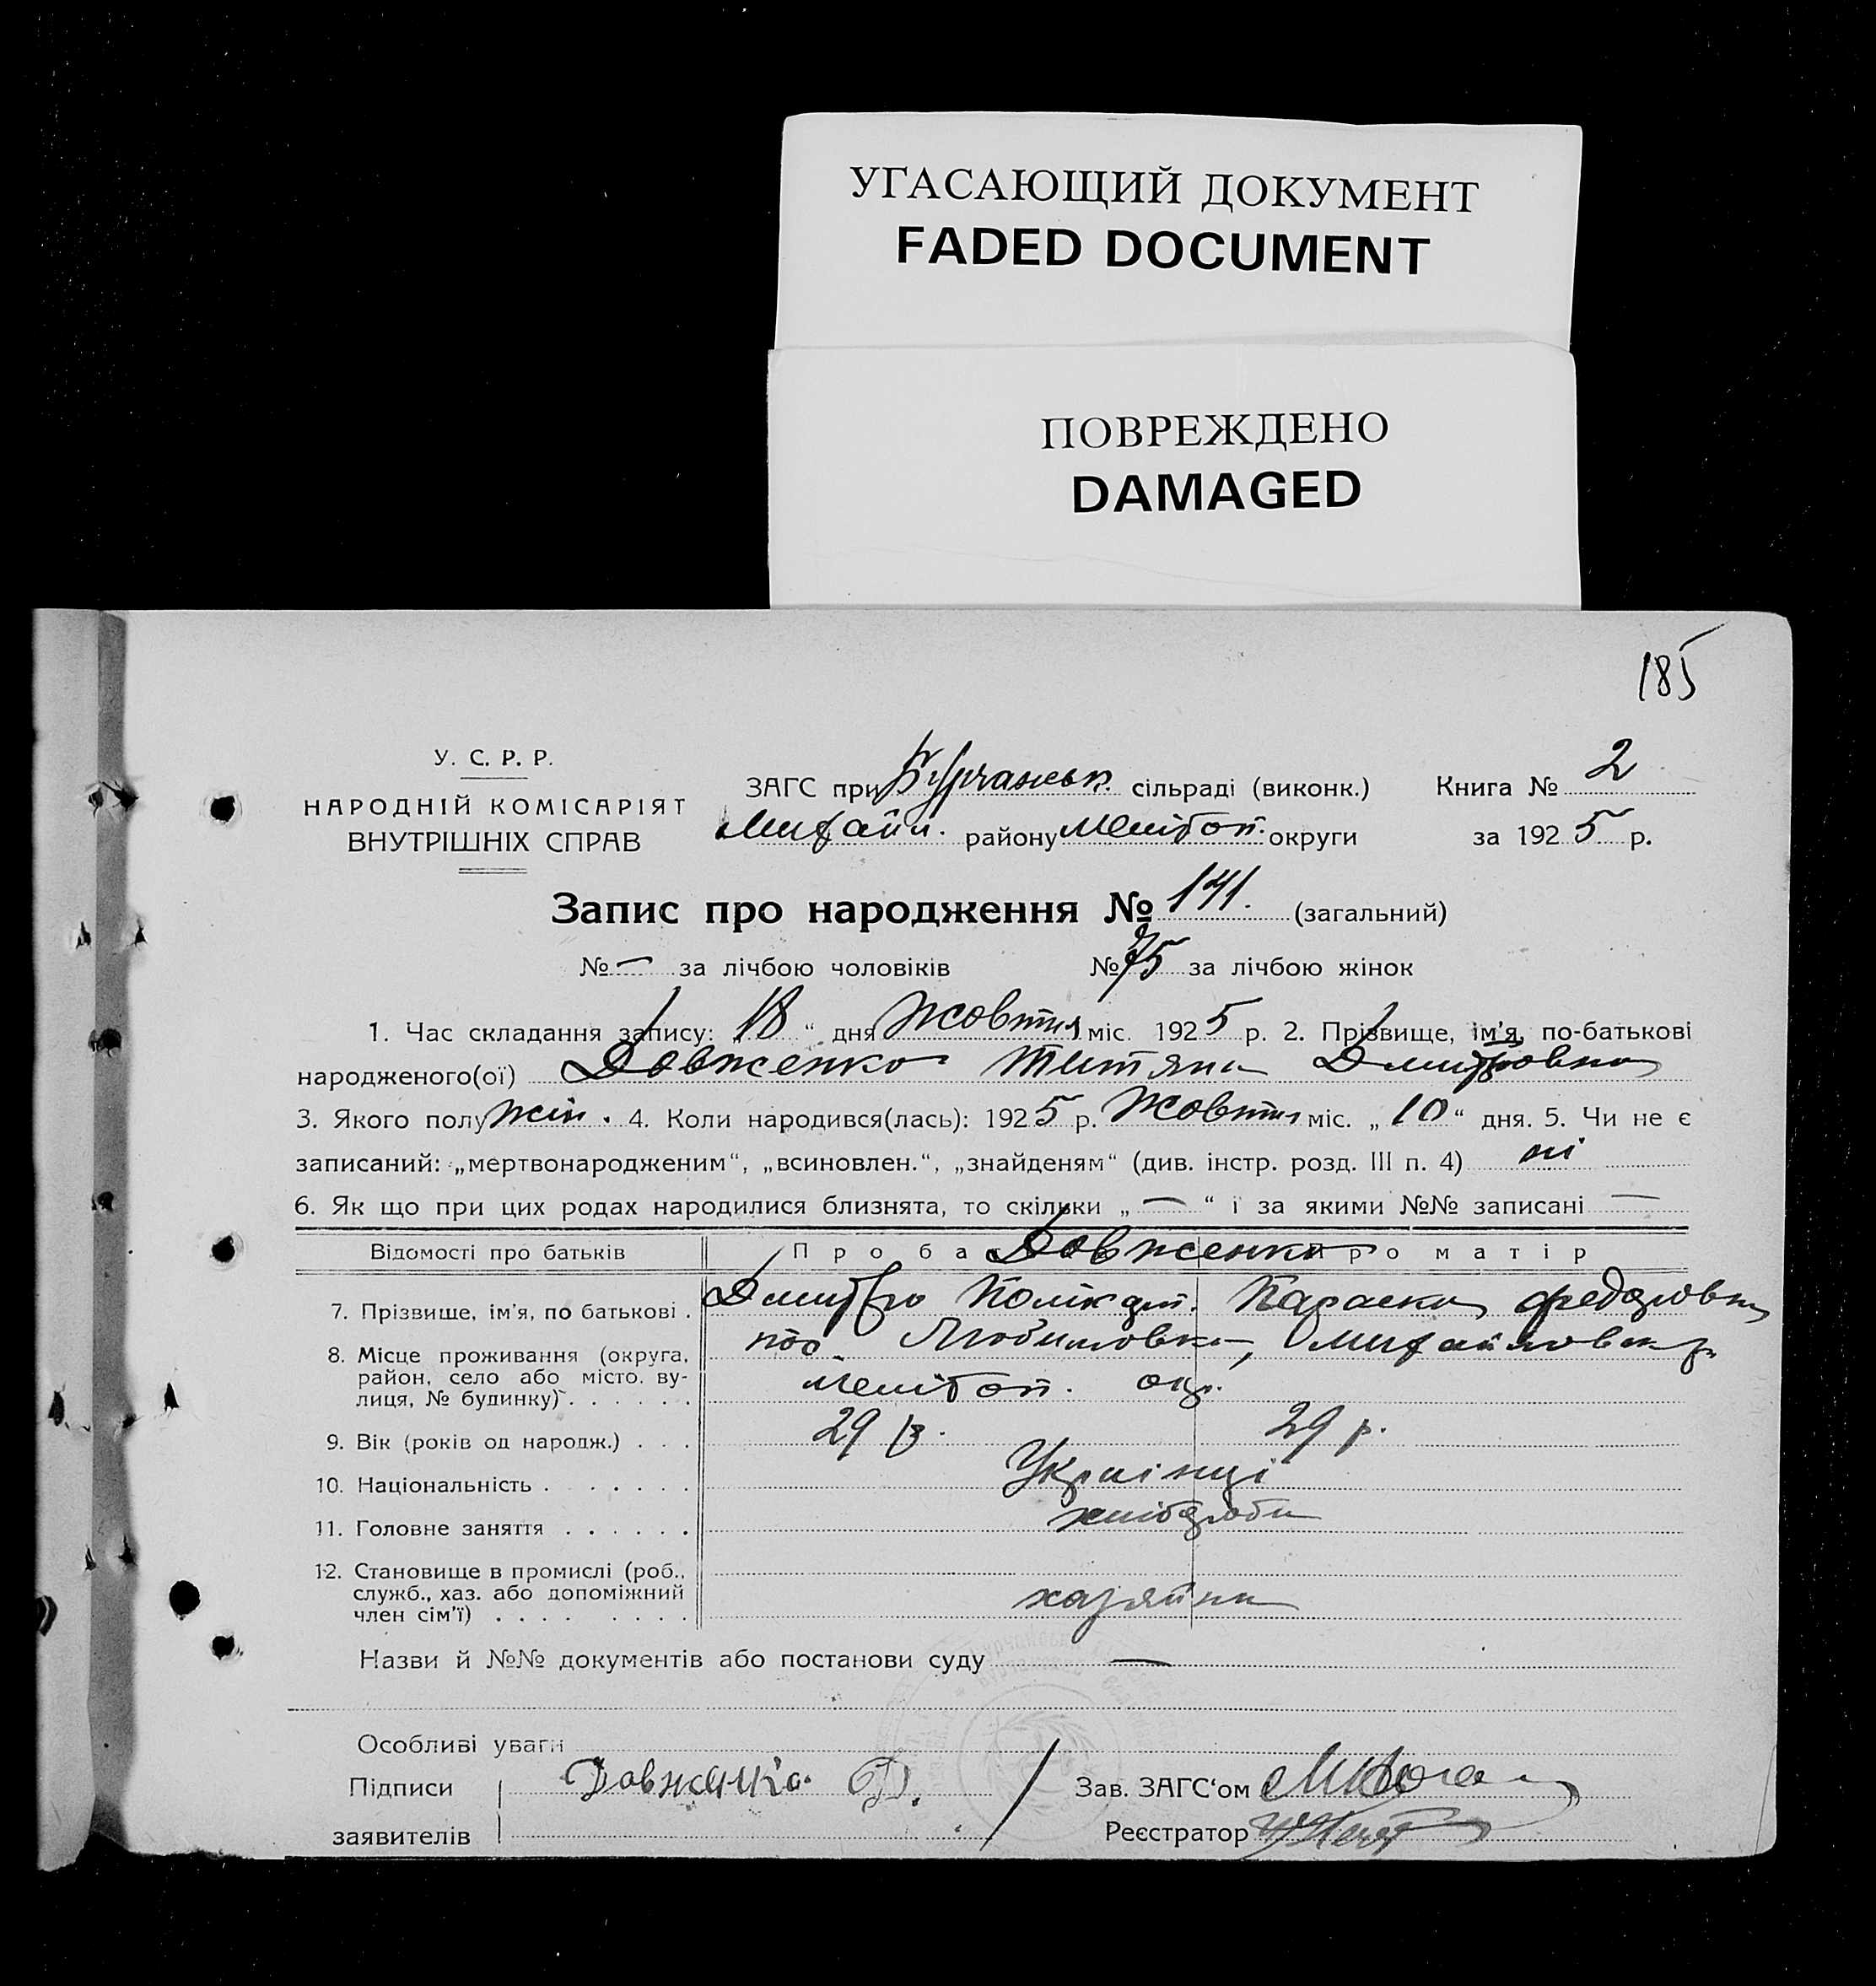 УГАСАЮЩИЙ ДОКУМЕНТ
FADED DOCUMENT
ПОВРЕЖДЕНО
DAMAGED
185
У. С. Р. Р.
НАРОДНІЙ КОМІСАРІЯТ
ВНУТРІШНІХ СПРАВ
ЗАГС при Бурчанськ. сільраді (виконк.)
Михайл. району Меліто́п. округи
Книга № 2
за 1925 р.
Запис про народження № 141. (загальний)
№ — за лічбою чоловіків № 75 за лічбою жінок
1. Час складання запису: „18“ дня Жовтня міс. 1925 р. 2. Прізвище, ім'я, по-батькові
народженого(ої) Довженко Титяна Дмитровна
3. Якого полу жін. 4. Коли народився(лась): 1925 р. Жовтня міс. „10“ дня. 5. Чи не є
записаний: „мертвонародженим“, „всиновлен.“, „знайденям“ (див. інстр. розд. III п. 4) ні
6. Як що при цих родах народилися близнята, то скільки „—“ і за якими №№ записані —
Відомості про батьків Про ба Довженко Про матір
7. Прізвище, ім'я, по батькові . Дмитро Полікарп. Параска Федоровна
8. Місце проживання (округа, район, село або місто. вулиця, № будинку) . . . . . . пос. Любимовка, Михайловск р.
Мелітоп. окр.
9. Вік (років од народж.) . . . 29 р. 29 р.
10. Національність . . . . . . . Українці
11. Головне заняття . . . . . . хлібороби
12. Становище в промислі (роб.,
служб., хаз. або допоміжний
член сім'ї) . . . . . . . . хазяїни
Назви й №№ документів або постанови суду —
Особливі уваги
Підписи Довженко Д.
заявителів
Зав. ЗАГС'ом
Реєстратор